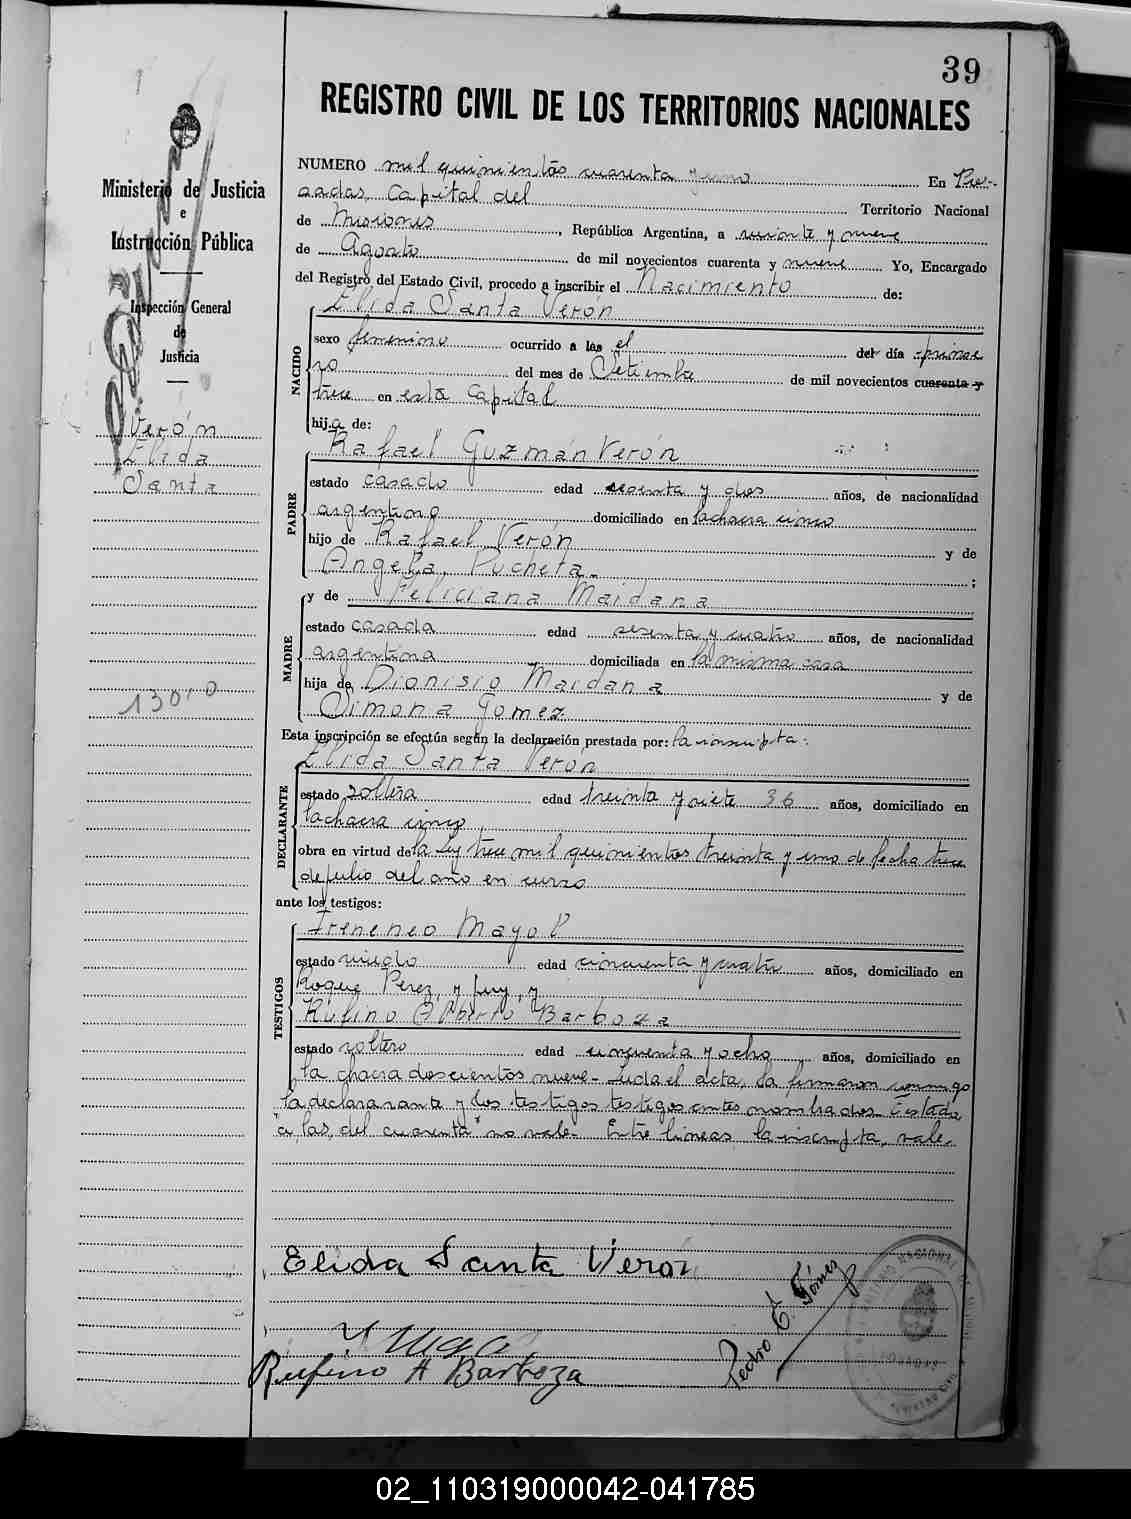 39
REGISTRO CIVIL DE LOS TERRITORIOS NACIONALES
Ministerio de Justicia
e
Instrucción Pública
Inspección General
de
Justicia
Verón
Elida
Santa
NUMERO mil quinientos cuarenta y uno En Po-
sadas, Capital del Territorio Nacional
de Misiones, República Argentina, a veinte y nueve
de Agosto de mil novecientos cuarenta y nueve Yo, Encargado
del Registro del Estado Civil, procedo a inscribir el Nacimiento de:
NACIDO
Elida Santa Verón
sexo femenino ocurrido a las el del día prime
ro del mes de Setiembre de mil novecientos cuarenta y
trece en esta Capital
hija de:
PADRE
Rafael Guzmán Verón
estado casado edad sesenta y dos años, de nacionalidad
argentino domiciliado en la chacra cinco
hijo de Rafael Verón y de
Angela Pucheta.- ;
MADRE
y de Feliciana Maidana
estado casada edad sesenta y cuatro años, de nacionalidad
argentina domiciliada en la misma casa
hija de Dionisio Maidana y de
Simona Gomez
Esta inscripción se efectúa según la declaración prestada por: la inscripta.
DECLARANTE
Elida Santa Verón
estado soltera edad treinta y siete 36 años, domiciliado en
la chacra cinco
obra en virtud de la Ley trece mil quinientos treinta y uno de fecha trece
de julio del año en curso
ante los testigos:
TESTIGOS
Ireneneo Mayol
estado viudo edad cincuenta y cuatro años, domiciliado en
Roque Perez y
Rufino Alberto Barboza
estado soltero edad cincuenta y ocho años, domiciliado en
la chacra doscientos nueve- Leida el acta, la firmaron conmigo
la declararante y los testigos testigos antes nombrados- Testado
"a las, del cuarenta" no vale- Entre lineas la inscripta, vale.
13010
Elida Santa Veron
Pedro E. Gómez
Rufino A Barboza
02_110319000042-041785